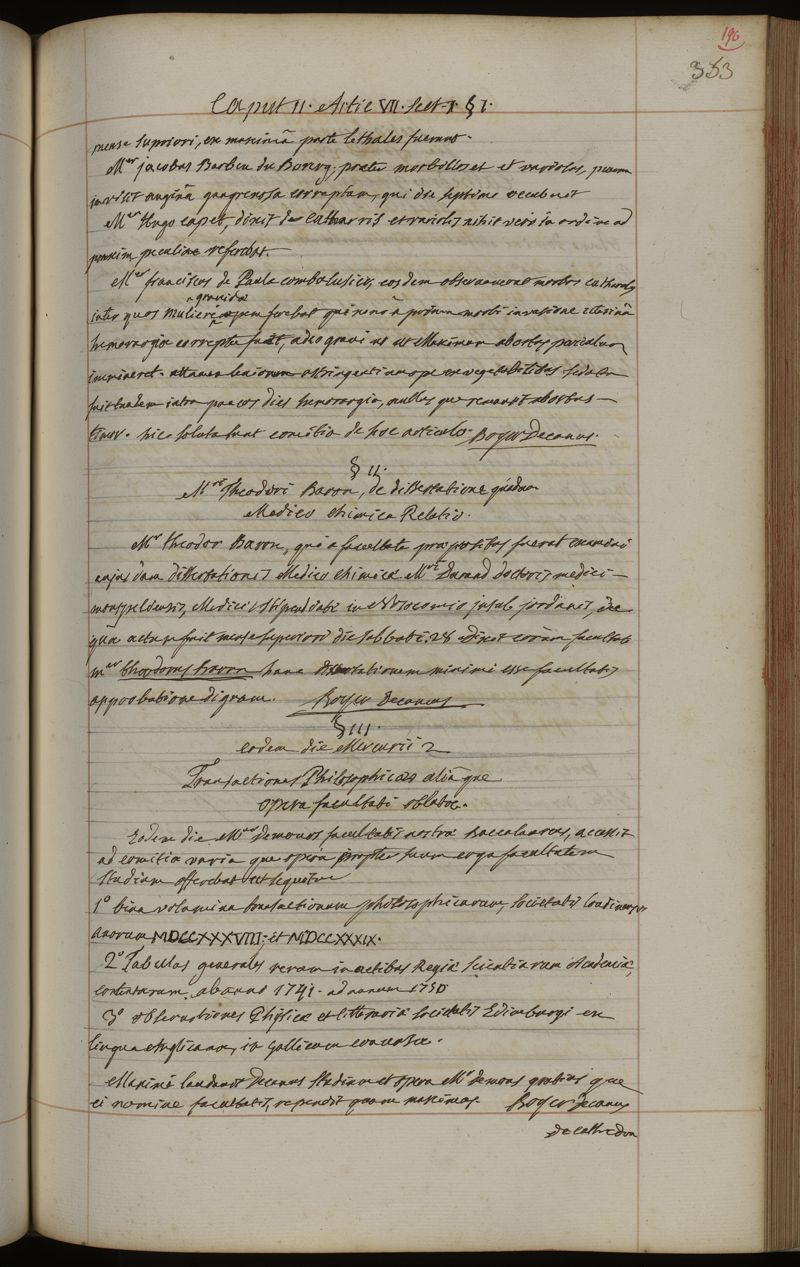 196
353
Caput II. Artic VII. Sect I. § I.
mense superiori, ex maximâ parte lethales fuerunt.
Mer jacobus Barbeu du Bourg, praeter morbillos et variolas, puerum
invisit anginâ gangrenosa correptam, qui die septimo
Mer Hugo Capet, dixit de Catharris et variolis nihil vero in ordine ad
praxim peculiare referebat.
Mer franciscus de Paula Combalusier, eosdem observaverat morbos catharales
gravidae
inter quos mulieri opem ferebat quae non à primâ morbi invasione uterinâ
hemorragia correpta fuit, adeo gravi ut ut maximum abortus periculum
immineret. attamen leniorum astringentium ope ex vegetabilibus sedata
fuit eadem intra paucos dies hemorragia, nullus que remansit abortus
timor. hic soluta sunt comitia de hoc articulo. Boyer Decanus.
§ II.
Mri Theodori Baron, de dissertatione quâdam
Medico chimica Relatio.
Mer theodor Baron, qui a facultate praepositus fuerat examini
cujusdam dissertationis Medico chimicae Mri Durand doctoris medici
monspeliensis, Medici stipendiati in insul. jordanis, de
quâ actum fuit mense superiori die sabbati 28 Dixit coram facultate
mer theodorus Baron hanc dissertationem minimè esse facultatis
approbatione dignam. Boyer Decanus
§ III.
eodem die Mercurii 2
Transactiones Philosophicae aliaque
opera facultati oblata.
Eodem die Mer Demours facultatis nostrae Baccalaureus, accessit
ad comitia varia que opera propter suum erga facultatem
studium offerebat ut sequitur
1º bina volumina transactionum philosophicarum, societatis londinensis
anorum MDCCXXXVIII, et MDCCXXXIX.
2º Tabulas generales rerum in actibus Regiae Scientiarum Academiae,
contentarum, ab anno 1741. ad annum 1750
3º observationes Physicae et litterariae societatis Edimburgi ex
linguâ Anglicanâ, in Gallicam conversae.
Maximè laudavit Decanus studium et opera Mri demours gratias que
ei nomine facultatis, rependit quam maximas. Boyer Decanus